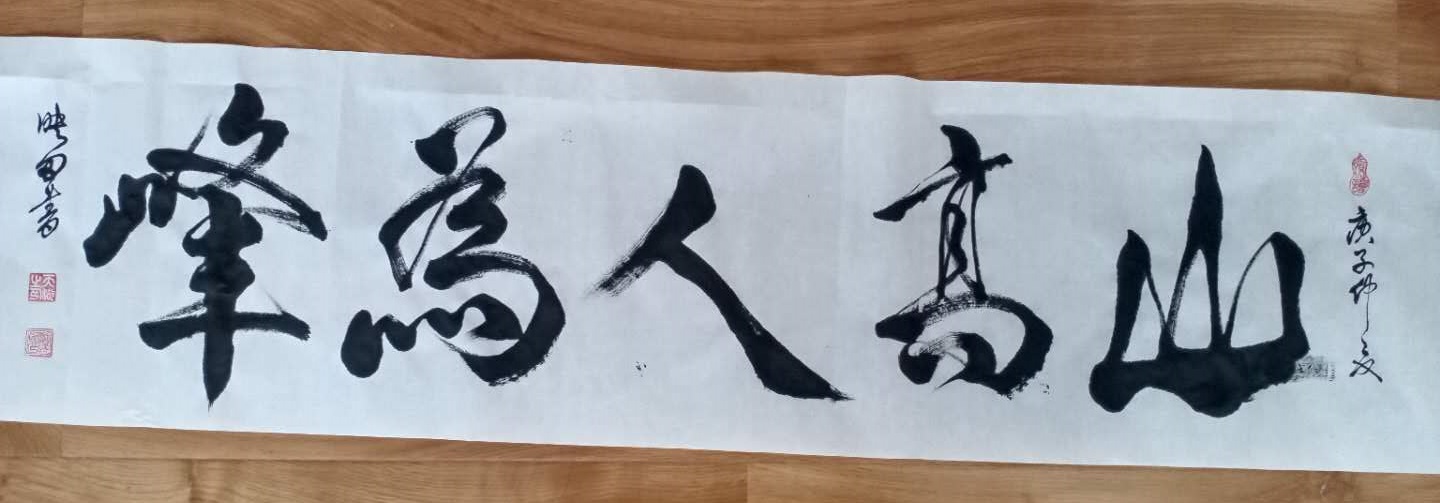 庚子仲夏
山高人為峰
映田書